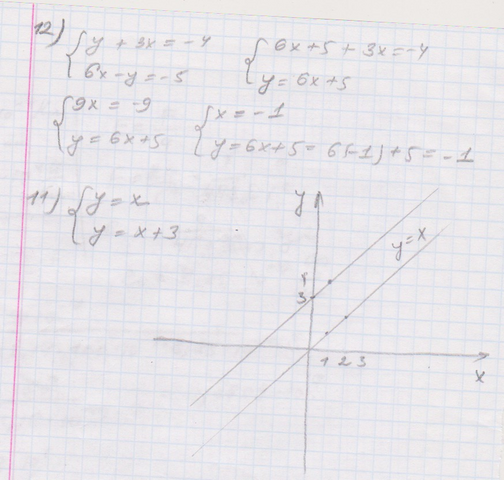 12) { y + 3x = -4   { 6x+5 + 3x = -4
6x - y = -5   y = 6x+5
{ 9x = -9   { x = -1
y = 6x+5   y = 6x+5 = 6(-1) + 5 = -1
11) { y = x
y = x+3
y
y=x
4
3
1 2 3
x